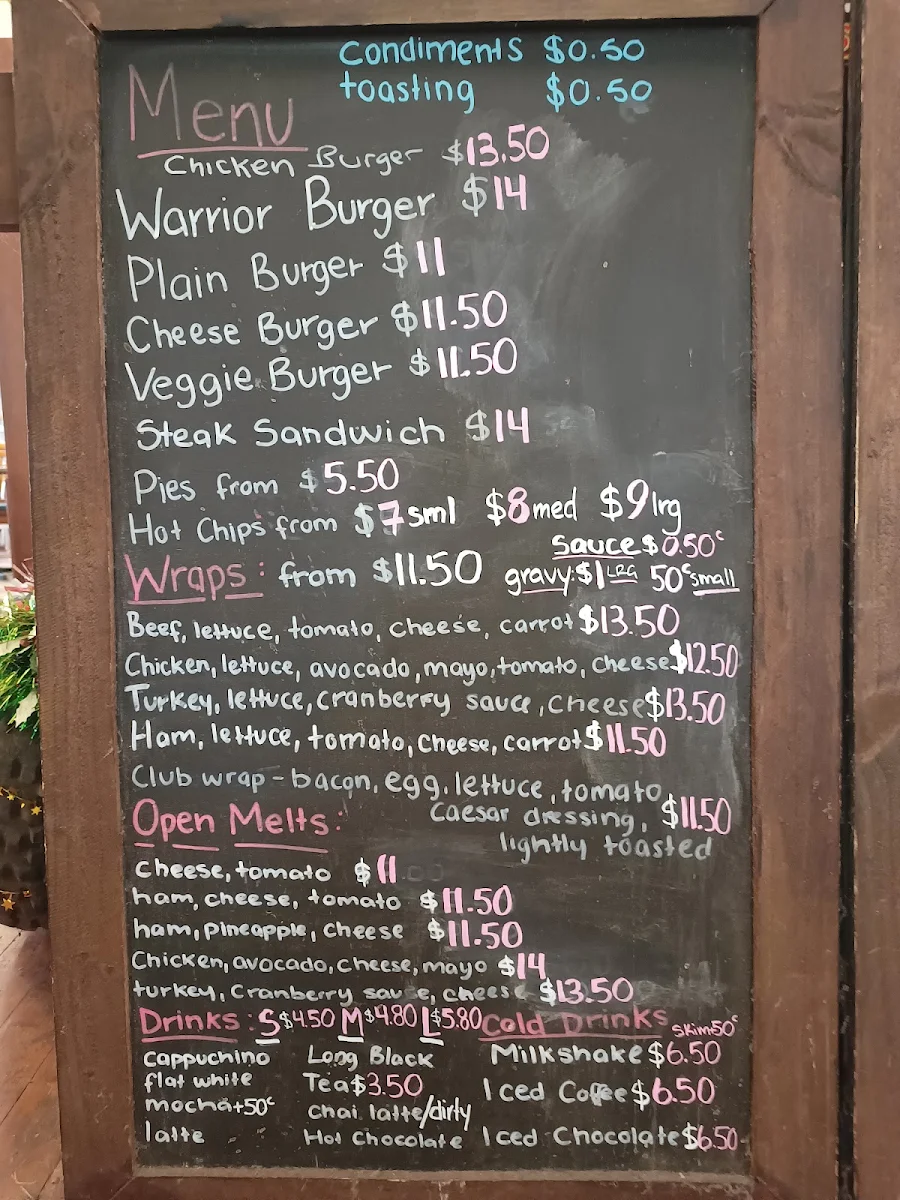 Condiments $0.50
toasting $0.50
Menu
Chicken Burger $13.50
Warrior Burger $14
Plain Burger $11
Cheese Burger $11.50
Veggie Burger $11.50
Steak Sandwich $14
Pies from $5.50
Hot Chips from $7 sml $8 med $9 lrg
Sauce $0.50c
Wraps: from $11.50 gravy:$1 LRG 50c small
Beef, lettuce, tomato, cheese, carrot $13.50
Chicken, lettuce, avocado, mayo, tomato, cheese $12.50
Turkey, lettuce, cranberry sauce, cheese $13.50
Ham, lettuce, tomato, cheese, carrot $11.50
Club wrap - bacon, egg, lettuce, tomato,
caesar dressing, $11.50
lightly toasted
Open Melts:
cheese, tomato $11
ham, cheese, tomato $11.50
ham, pineapple, cheese $11.50
Chicken, avocado, cheese, mayo $14
turkey, cranberry sauce, cheese $13.50
Drinks: S $4.50 M $4.80 L $5.80 Cold Drinks skim 50c
cappuchino Long Black Milkshake $6.50
flat white Tea $3.50 Iced Coffee $6.50
mocha +50c chai latte/dirty
latte Hot Chocolate Iced Chocolate $6.50